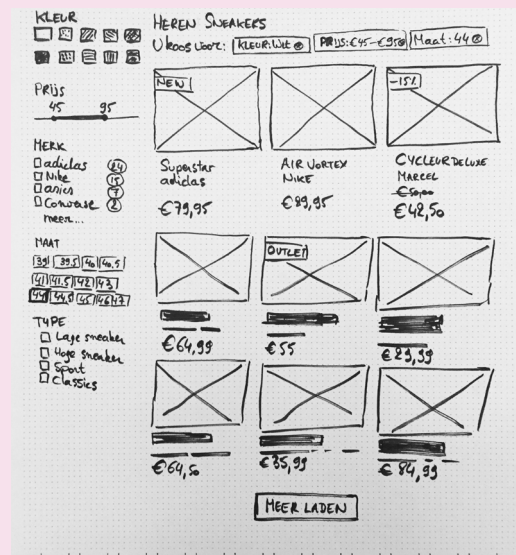 KLEUR
PRIJS
45 95
MERK
adidas 24
Nike 15
asics 7
Converse 2
meer...
MAAT
39 39.5 40 40.5
41 41.5 42 43
44 44.5 45 46 47
TYPE
Lage sneaker
Hoge sneaker
Sport
Classics
HEREN SNEAKERS
U koos voor: KLEUR: Wit PRIJS: €45-€95 Maat: 44
NEW
Superstar
adidas
€79,95
AIR VORTEX
NIKE
€89,95
-15%
CYCLEUR DE LUXE
MARCEL
€50,00
€42,50
€64,99
OUTLET
€55
€29,99
€64,50
€35,99
€84,99
MEER LADEN